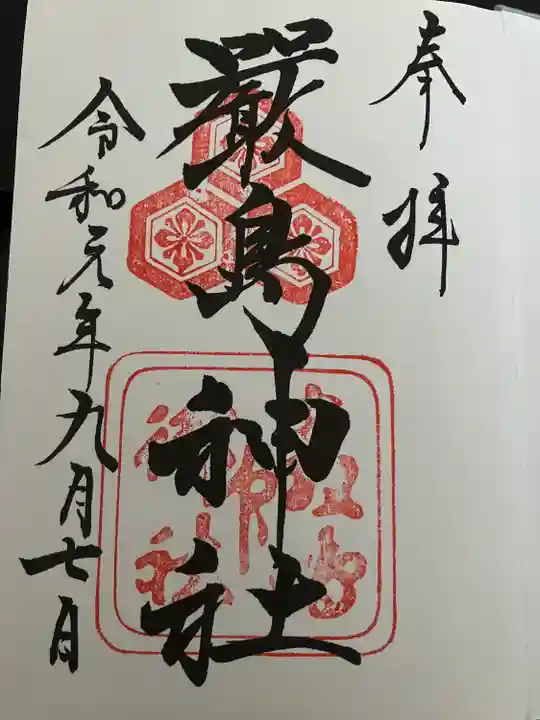 奉拝
嚴島神社
令和元年九月七日